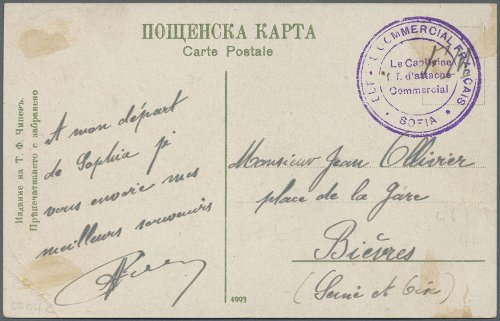 ПОЩЕНСКА КАРТА
Carte Postale
COMMERCIAL FRANÇAIS
Le Capitaine
f. f. d'attaché
Commercial
* SOFIA *
A mon départ
de Sophia je
vous envoie mes
meilleurs souvenirs
Monsieur Jean Ollivier
place de la Gare
Bièvres
(Seine et Oise)
Издание на Т. Ф. Чипевъ.
Прѣпечатването е забранено
4993